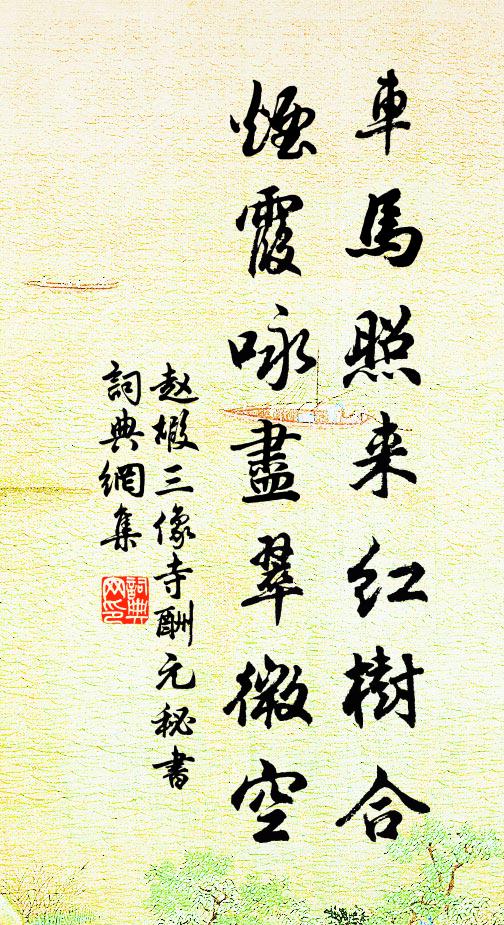 車馬照来紅樹合
煙霞咏盡翠微空
赵嘏三像寺酬元秘書
詞典網集
詞典
網印